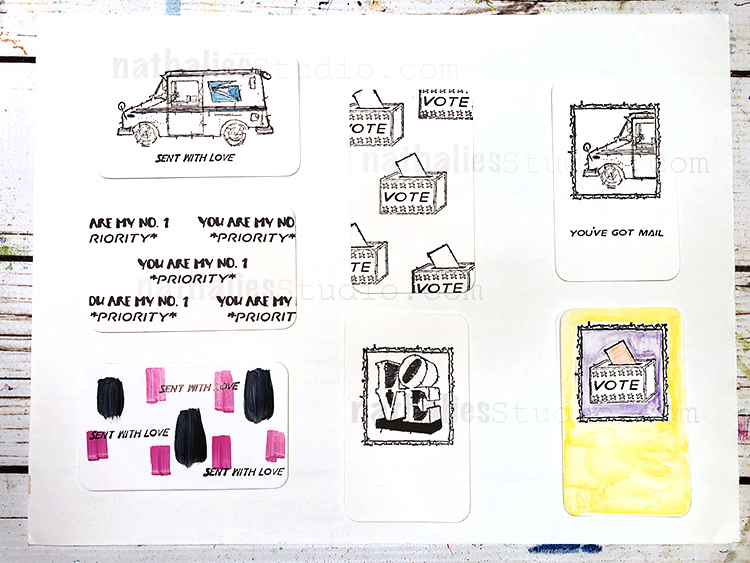 nathaliesStudio.com
SENT WITH LOVE
ARE MY NO. 1
RIORITY*
YOU ARE MY NO
*PRIORITY*
YOU ARE MY NO. 1
*PRIORITY*
OU ARE MY NO. 1
*PRIORITY*
YOU ARE MY
*PRIORIT
SENT WITH LOVE
SENT WITH LOVE
SENT WITH LOVE
VOTE
VOTE
VOTE
VOTE
VOTE
nathaliesStudio.com
nathaliesStudio.com
VOTE
nathaliesStudio.com
YOU'VE GOT MAIL
VOTE